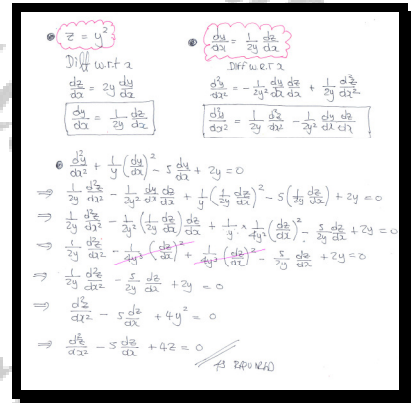 • z = y²
Diff w.r.t x
dz/dx = 2y dy/dx
dy/dx = 1/2y dz/dx
• dy/dx = 1/2y dz/dx
Diff w.r.t x
d²y/dx² = -1/2y² dy/dx dz/dx + 1/2y d²z/dx²
d²y/dx² = 1/2y d²z/dx² - 1/2y² dy/dx dz/dx
• d²y/dx² + 1/y (dy/dx)² - 5 dy/dx + 2y = 0
⇒ 1/2y d²z/dx² - 1/2y² dy/dx dz/dx + 1/y (1/2y dz/dx)² - 5(1/2y dz/dx) + 2y = 0
⇒ 1/2y d²z/dx² - 1/2y² (1/2y dz/dx) dz/dx + 1/y × 1/4y² (dz/dx)² - 5/2y dz/dx + 2y = 0
⇒ 1/2y d²z/dx² - 1/4y³ (dz/dx)² + 1/4y³ (dz/dx)² - 5/2y dz/dx + 2y = 0
⇒ 1/2y d²z/dx² - 5/2y dz/dx + 2y = 0
⇒ d²z/dx² - 5 dz/dx + 4y² = 0
⇒ d²z/dx² - 5 dz/dx + 4z = 0
AS REQUIRED